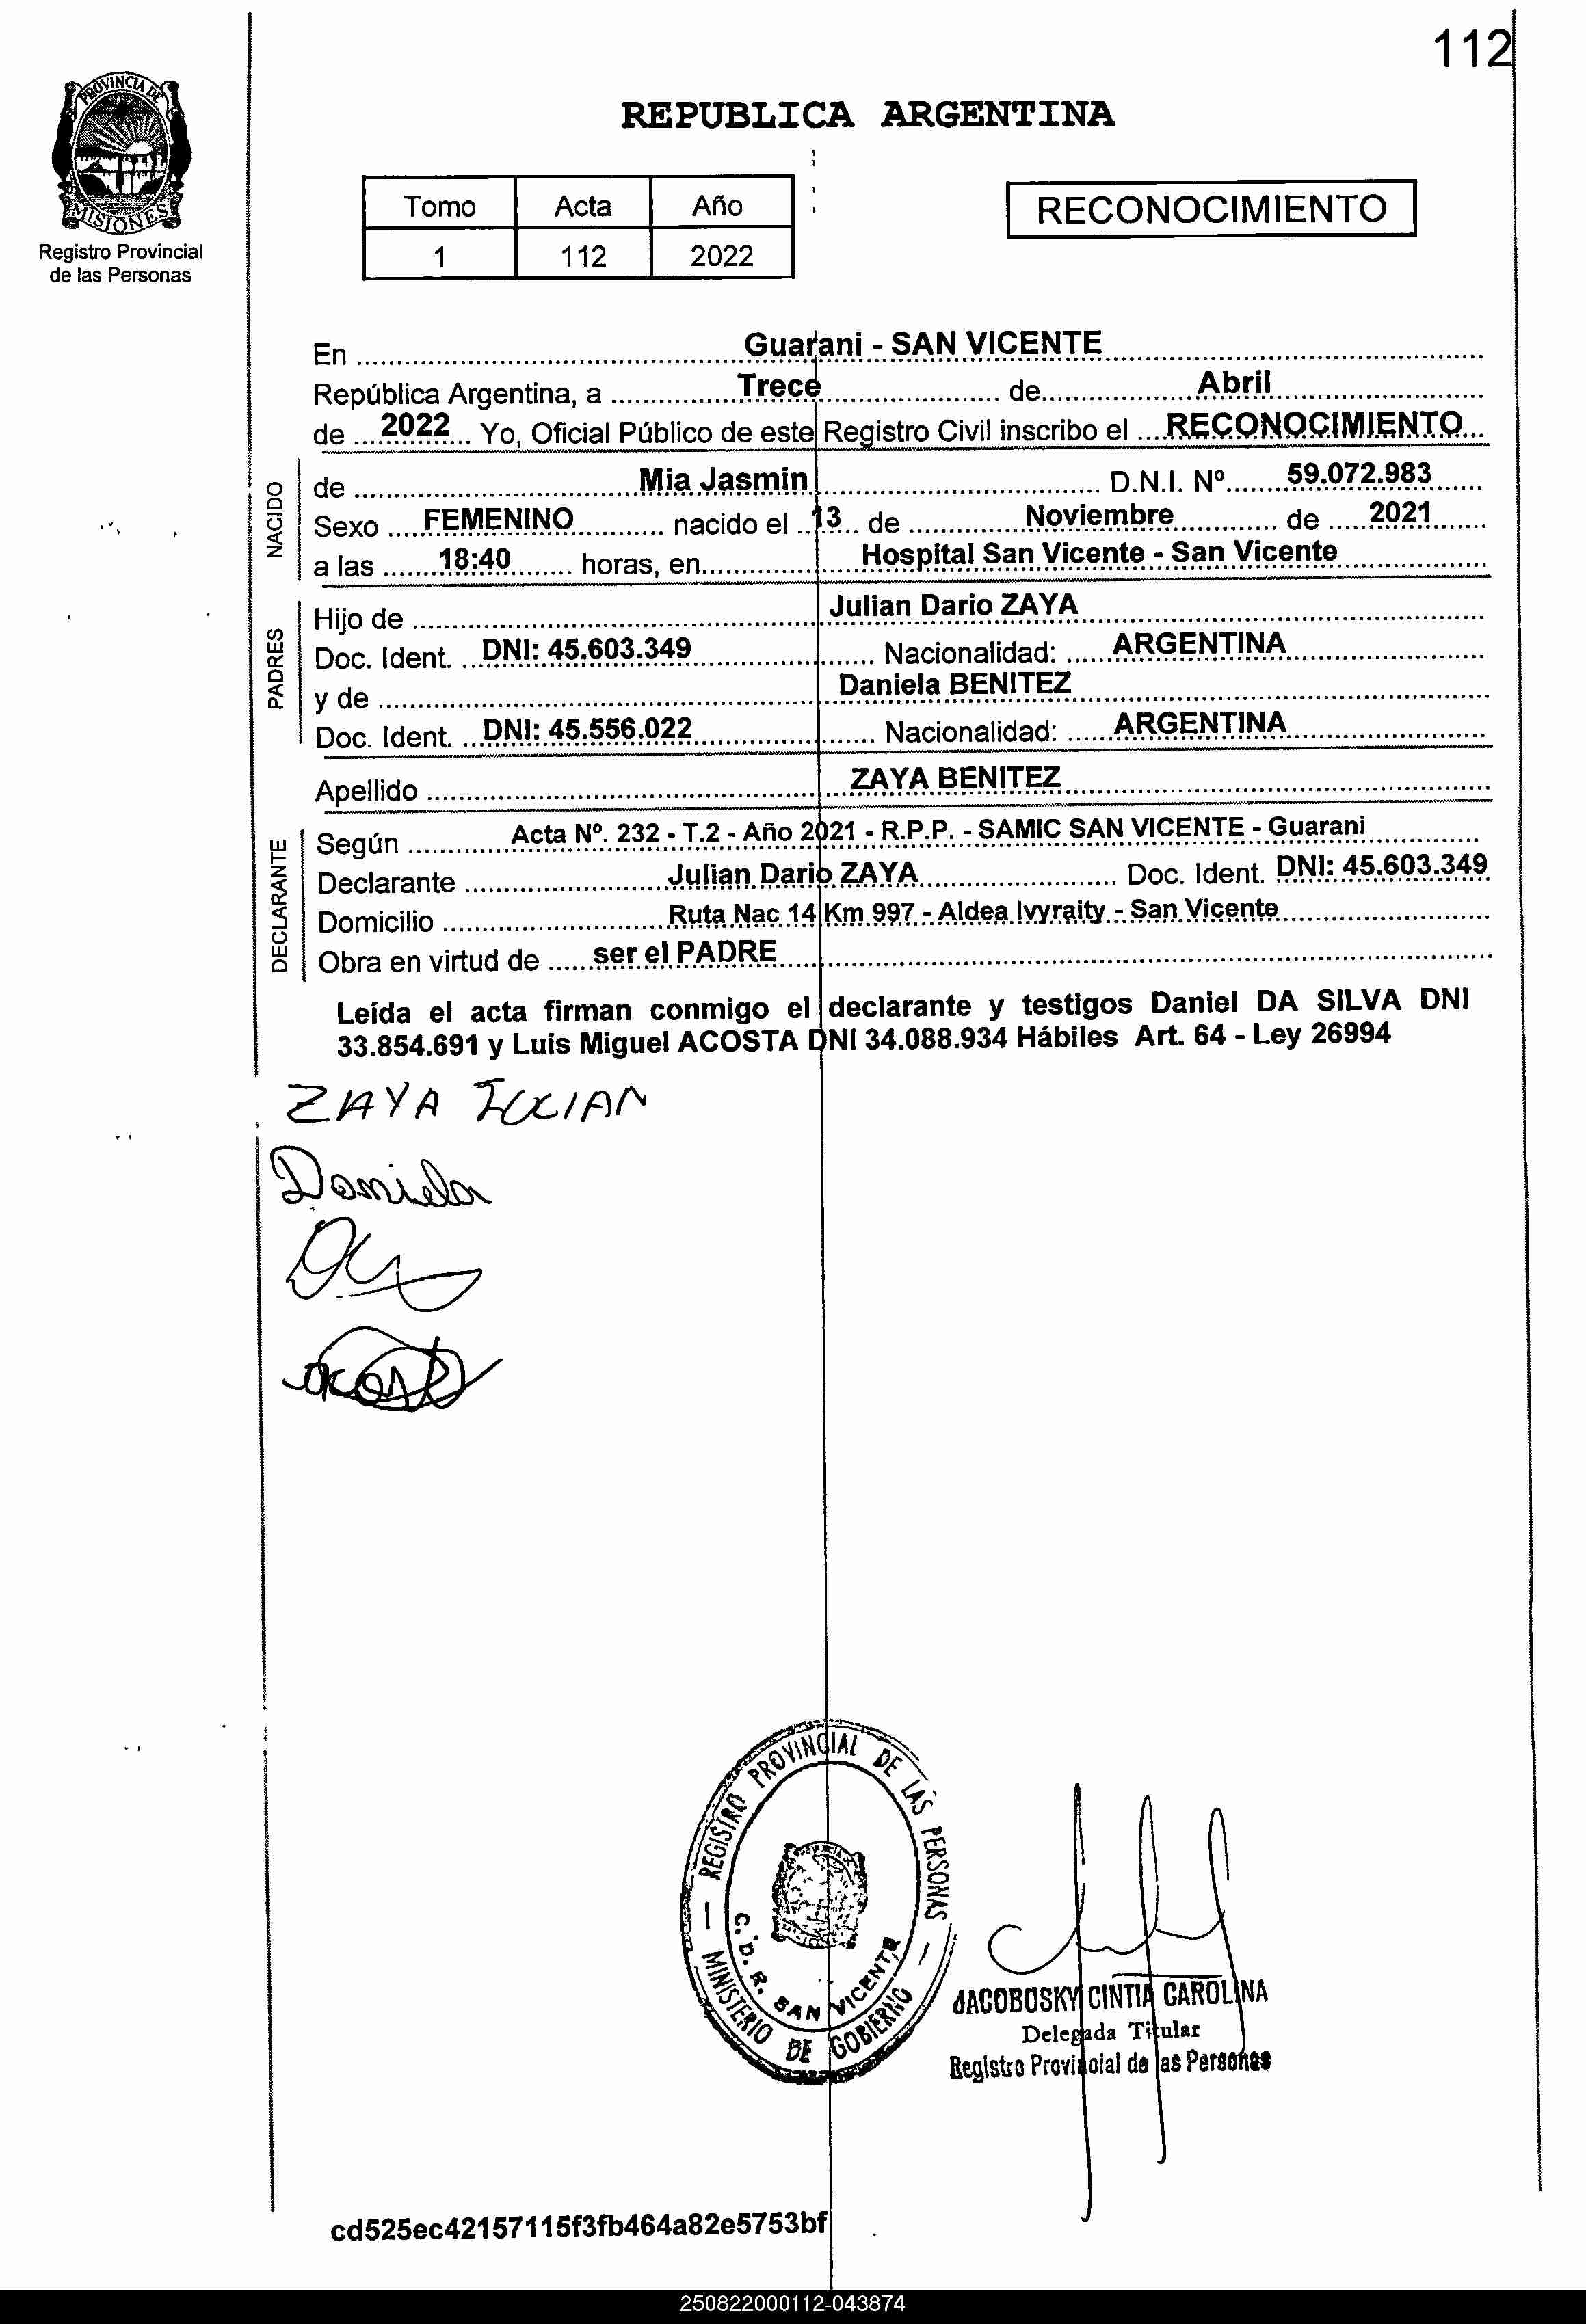 112
PROVINCIA DE
MISIONES
Registro Provincial
de las Personas
REPUBLICA ARGENTINA
Tomo Acta Año
1 112 2022
RECONOCIMIENTO
En Guarani - SAN VICENTE
República Argentina, a Trece de Abril
de 2022 Yo, Oficial Público de este Registro Civil inscribo el RECONOCIMIENTO
NACIDO
de Mia Jasmin D.N.I. Nº 59.072.983
Sexo FEMENINO nacido el 13 de Noviembre de 2021
a las 18:40 horas, en Hospital San Vicente - San Vicente
PADRES
Hijo de Julian Dario ZAYA
Doc. Ident. DNI: 45.603.349 Nacionalidad: ARGENTINA
y de Daniela BENITEZ
Doc. Ident. DNI: 45.556.022 Nacionalidad: ARGENTINA
Apellido ZAYA BENITEZ
DECLARANTE
Según Acta Nº. 232 - T.2 - Año 2021 - R.P.P. - SAMIC SAN VICENTE - Guarani
Declarante Julian Dario ZAYA Doc. Ident. DNI: 45.603.349
Domicilio Ruta Nac 14 Km 997 - Aldea Ivyraity - San Vicente
Obra en virtud de ser el PADRE
Leída el acta firman conmigo el declarante y testigos Daniel DA SILVA DNI
33.854.691 y Luis Miguel ACOSTA DNI 34.088.934 Hábiles Art. 64 - Ley 26994
ZAYA JULIAN
Daniela
REGISTRO PROVINCIAL DE LAS PERSONAS
MINISTERIO DE GOBIERNO
C. D. R. SAN VICENTE
JACOBOSKY CINTIA CAROLINA
Delegada Titular
Registro Provincial de las Personas
cd525ec42157115f3fb464a82e5753bf
250822000112-043874